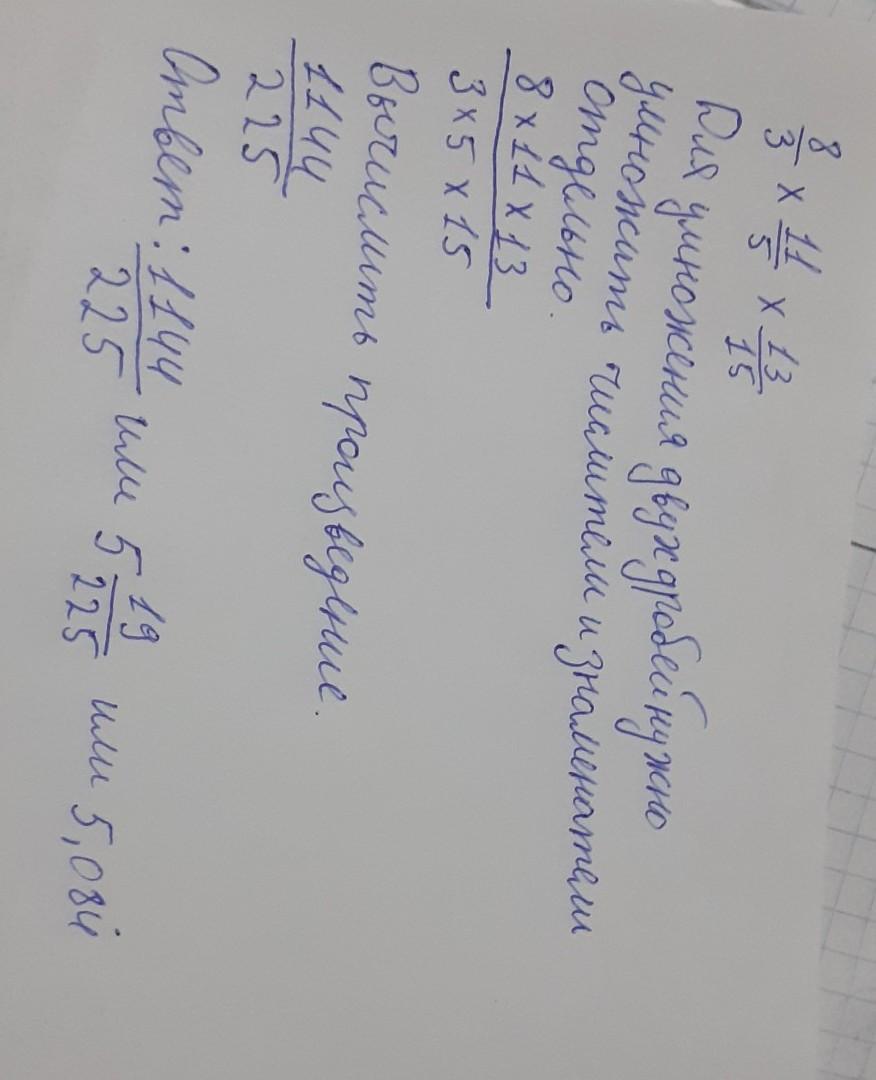 8/3 x 11/5 x 13/15
Для умножения двух дробей нужно
умножить числители и знаменатели
отдельно.
8 x 11 x 13
3 x 5 x 15
Вычислить произведение.
1144
225
Ответ: 1144/225 или 5 19/225 или 5,084̇